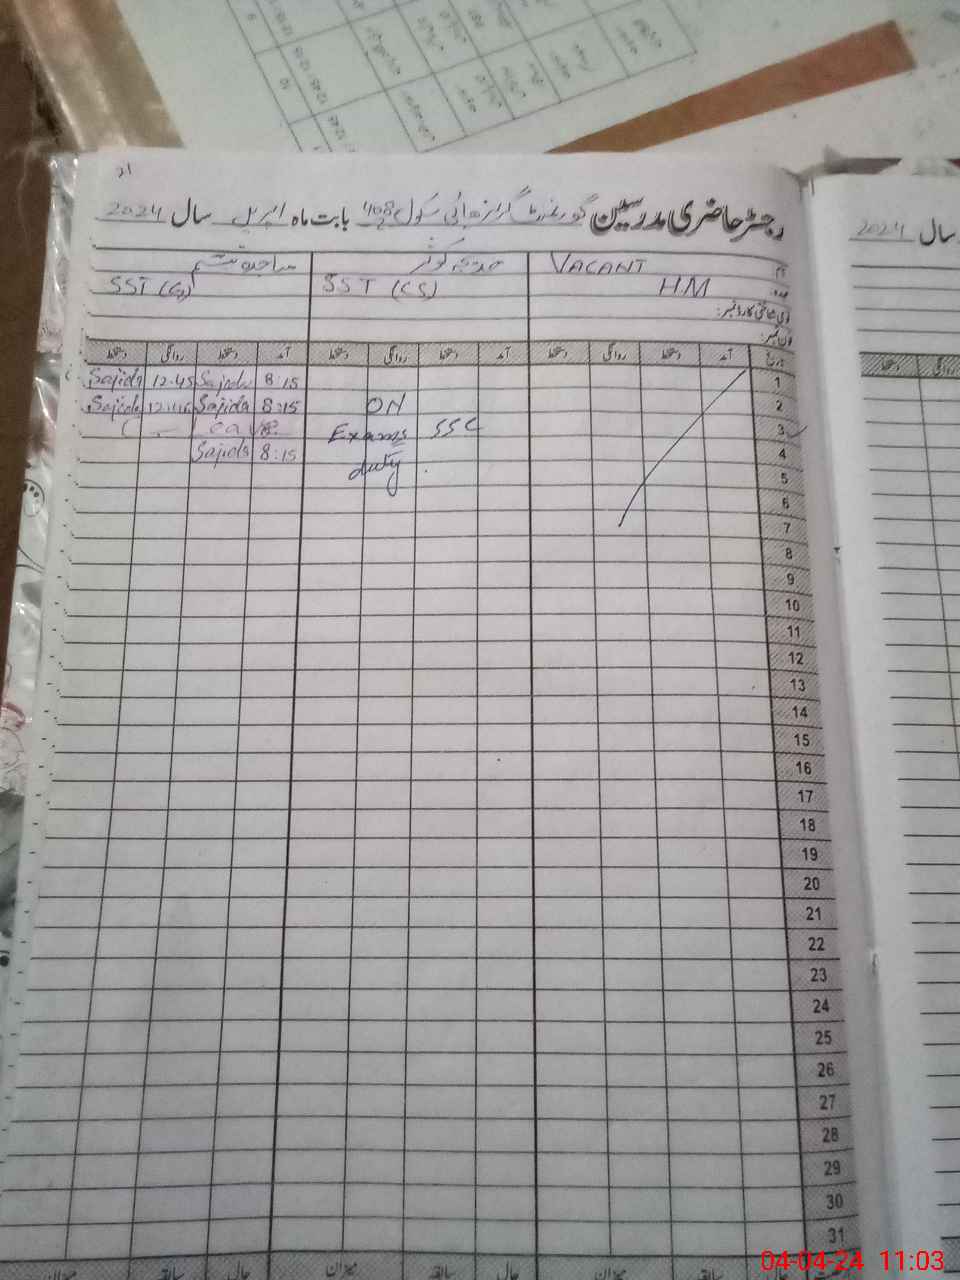 21
رجسٹر حاضری مدرسین گورنمنٹ گرلز ہائی سکول 408/2 بابت ماہ اپریل سال 2024
سال 2024
نام VACANT خدیجہ کوثر ساجدہ
عہدہ HM SST (CS) SST (G)
قومی شناختی کارڈ نمبر:
فون نمبر:
تاریخ آمد دستخط روانگی دستخط آمد دستخط روانگی دستخط آمد دستخط روانگی دستخط
دستخط
1 8:15 Sajida 12.45 Sajida
2 ON 8:15 Sajida 12:45 Sajida
3 Exams SSC Leave
4 duty 8:15 Sajida
5
6
7
8
9
10
11
12
13
14
15
16
17
18
19
20
21
22
23
24
25
26
27
28
29
30
31
حال سابقہ میزان حال سابقہ میزان حال سابقہ میزان
04-04-24 11:03